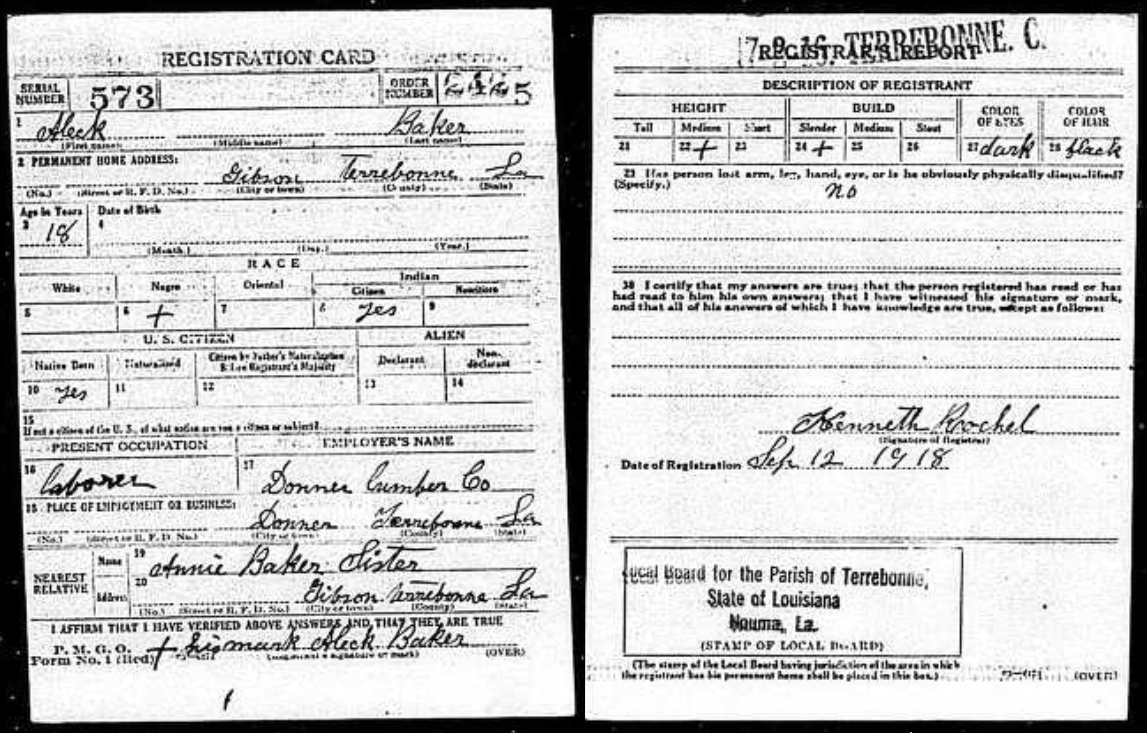 REGISTRATION CARD
SERIAL NUMBER 573 ORDER NUMBER
1 Aleck Baker
(First name) (Middle name) (Last name)
2 PERMANENT HOME ADDRESS:
Gibson Terrebonne La
(No.) (Street or R. F. D. No.) (City or town) (County) (State)
Age in Years Date of Birth
3 18 4
(Month.) (Day.) (Year.)
RACE
White Negro Oriental Indian
Citizen Noncitizen
5 6 + 7 8 Yes 9
U. S. CITIZEN ALIEN
Native Born Naturalized Citizen by Father's Naturalization Before Registrant's Majority Declarant Non-declarant
10 Yes 11 12 13 14
15
If not a citizen of the U. S., of what nation are you a citizen or subject?
PRESENT OCCUPATION EMPLOYER'S NAME
16 laborer 17 Donner Lumber Co
18 PLACE OF EMPLOYMENT OR BUSINESS:
Donner Terrebonne La
(No.) (Street or R. F. D. No.) (City or town) (County) (State)
NEAREST RELATIVE Name 19 Annie Baker Sister
Address 20 Gibson Terrebonne La
(No.) (Street or R. F. D. No.) (City or town) (County) (State)
I AFFIRM THAT I HAVE VERIFIED ABOVE ANSWERS AND THAT THEY ARE TRUE
P. M. G. O.
Form No. 1 (Red) + his mark Aleck Baker
(Registrant's signature or mark) (OVER)
TERREBONNE. C.
REGISTRAR'S REPORT
DESCRIPTION OF REGISTRANT
HEIGHT BUILD COLOR OF EYES COLOR OF HAIR
Tall Medium Short Slender Medium Stout
21 22 + 23 24 + 25 26 27 dark 28 black
29 Has person lost arm, leg, hand, eye, or is he obviously physically disqualified?
(Specify.) no
30 I certify that my answers are true; that the person registered has read or has
had read to him his own answers; that I have witnessed his signature or mark,
and that all of his answers of which I have knowledge are true, except as follows:
Kenneth Rochel
(Signature of Registrar)
Date of Registration Sep 12 1918
Local Board for the Parish of Terrebonne,
State of Louisiana
Houma, La.
(STAMP OF LOCAL BOARD)
(The stamp of the Local Board having jurisdiction of the area in which
the registrant has his permanent home shall be placed in this box.) (OVER)